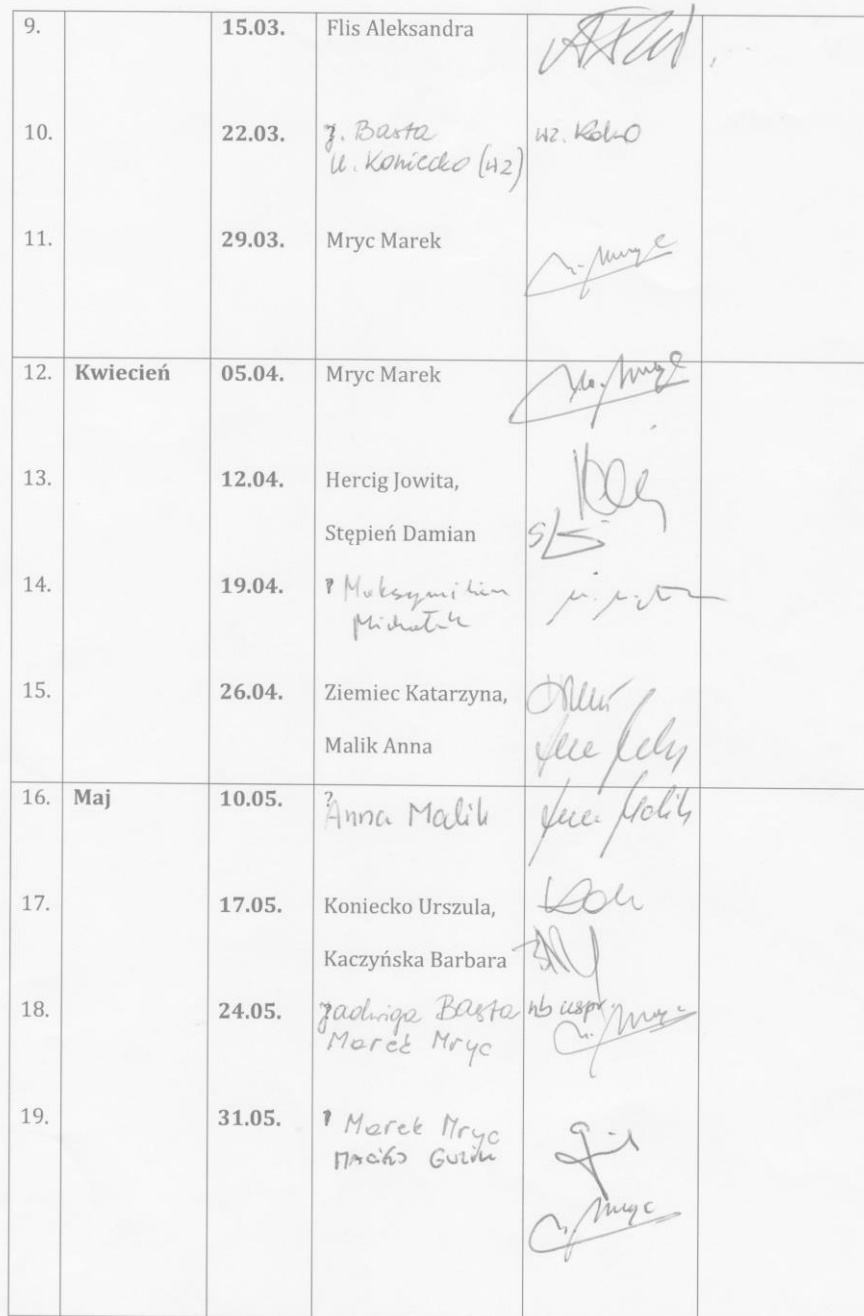 9. 15.03. Flis Aleksandra
10. 22.03. J. Basta wz. Koko
U. Koniecko (wz)
11. 29.03. Mryc Marek
12. Kwiecień 05.04. Mryc Marek
13. 12.04. Hercig Jowita,
Stępień Damian
14. 19.04. ? Maksymilian
Michałek
15. 26.04. Ziemiec Katarzyna,
Malik Anna
16. Maj 10.05. ?
Anna Malik Anna Malik
17. 17.05. Koniecko Urszula,
Kaczyńska Barbara
18. 24.05. Jadwiga Basta nb uspr.
Marek Mryc
19. 31.05. ? Marek Mryc